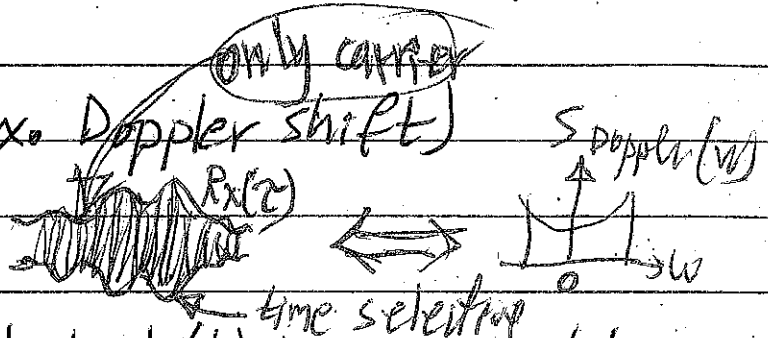 only carrier
x. Doppler shift)
S Doppler(w)
Rx(τ)
w
0
time selective